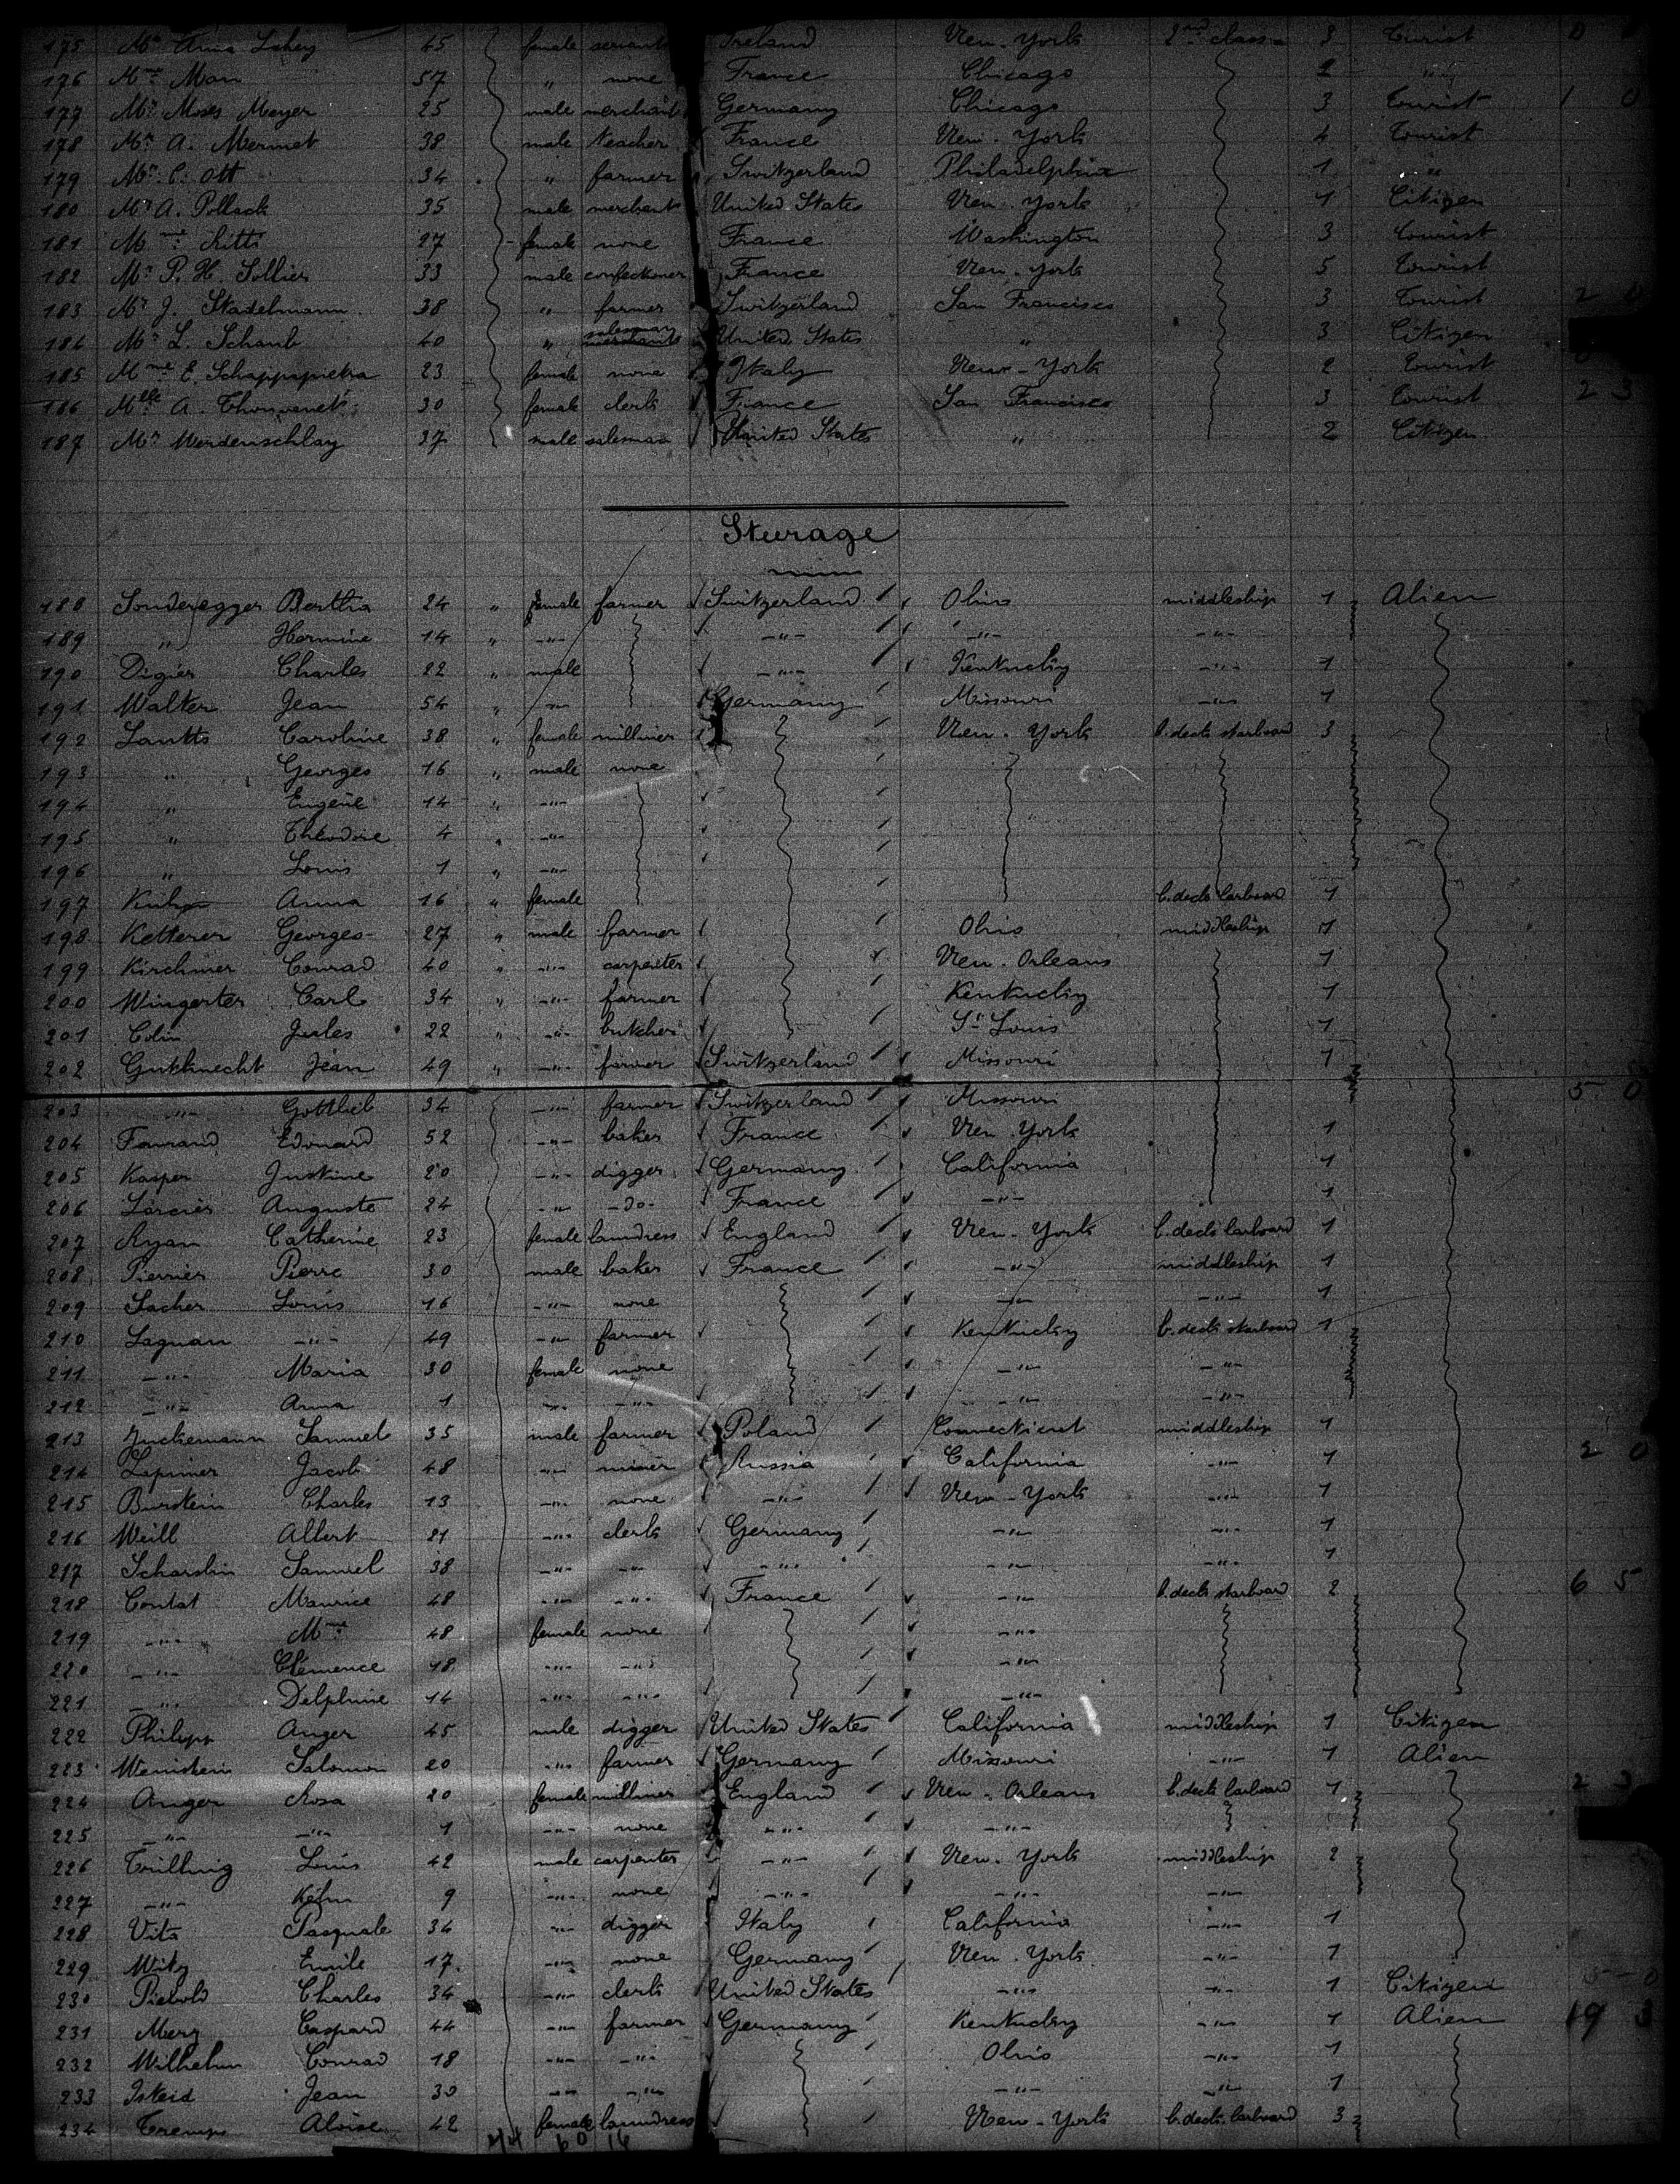 175 Mrs Anna Lahey 45 female servant Ireland New-York 2nd class 3 Tourist 0
176 Mme Man 57 " none France Chicago 2 "
177 Mr Moses Meyer 25 male merchant Germany Chicago 3 Tourist 1 0
178 Mr A. Mermet 38 male teacher France New-York 4 Tourist
179 Mr C. Ott 34 " farmer Switzerland Philadelphia 1 "
180 Mr A. Pollack 35 male merchant United States New-York 1 Citizen
181 Mme Kitti 27 female none France Washington 3 Tourist
182 Mr P. H. Sollier 33 male confectioner France New-York 5 Tourist
183 Mr J. Stadelmann 38 " farmer Switzerland San Francisco 3 Tourist 2 0
184 Mr L. Schaub 40 " salesman United States " 3 Citizen
185 Mme E. Schappapietra 23 female none Italy New-York 2 Tourist
186 Melle A. Thouvenet 30 female clerk France San Francisco 3 Tourist 2 3
187 Mr Werdenschlag 37 male salesman United States " 2 Citizen
Steerage
188 Sonderegger Bertha 24 " female farmer Switzerland Ohio middleship 1 Alien
189 " Hermine 14 " -"- -"- -"- -"-
190 Digier Charles 22 " male -"- Kentucky -"- 1
191 Walter Jean 54 " -"- Germany Missouri -"- 1
192 Lantts Caroline 38 " female milliner New-York b.deck starboard 3
193 " Georges 16 " male none
194 " Eugene 14 " -"-
195 " Theodore 4 " -"-
196 " Louis 1 " -"-
197 Anna 16 " female b.deck larboard 1
198 Ketterer Georges 27 " male farmer Ohio middleship 1
199 Kirchner Conrad 40 " -"- carpenter New-Orleans 1
200 Wingerter Carl 34 " -"- farmer Kentucky 1
201 Colin Jules 22 " -"- butcher St Louis 1
202 Gutknecht Jean 49 " -"- farmer Switzerland Missouri 1
203 -"- Gottlieb 34 -"- farmer Switzerland Missouri 5 0
204 Farrand Edouard 52 -"- baker France New-York 1
205 Kasper Justine 20 -"- digger Germany California 1
206 Auguste 24 -"- -do- France -"- 1
207 Ryan Catherine 23 female laundress England New-York b.deck larboard 1
208 Pierrier Pierre 30 male baker France -"- middleship 1
209 Sacher Louis 16 -"- none -"- -"- 1
210 Lagnan -"- 49 -"- farmer Kentucky b.deck starboard 1
211 -"- Maria 30 female none -"- -"-
212 -"- Anna 1 -"- -"- -"- -"-
213 Juckemann Samuel 35 male farmer Poland Connecticut middleship 1
214 Lapiner Jacob 48 -"- miner Russia California -"- 1 2 0
215 Burstein Charles 13 -"- none -"- New-York -"- 1
216 Weill Albert 21 -"- clerk Germany -"- -"- 1
217 Scharslin Samuel 38 -"- -"- -"- -"- -"- 1
218 Contat Maurice 48 -"- -"- France -"- b.deck starboard 2 6 5
219 -"- Mme 48 female none -"-
220 -"- Clémence 18 -"- -"- -"-
221 -"- Delphine 14 -"- -"- -"-
222 Philipp Anger 45 male digger United States California middleship 1 Citizen
223 Weinstein Salomon 20 -"- farmer Germany Missouri -"- 1 Alien
224 Anger Rosa 20 female milliner England New-Orleans b.deck larboard 1 2 3
225 -"- -"- 1 -"- none -"- -"-
226 Trilling Louis 42 male carpenter -"- New-York middleship 2
227 -"- 9 -"- none -"- -"- -"-
228 Vito Pasquale 34 -"- digger Italy California -"- 1
229 Witz Emile 17 -"- none Germany New-York -"- 1
230 Piebold Charles 34 -"- clerk United States -"- -"- 1 Citizen
231 Merz Caspard 44 -"- farmer Germany Kentucky -"- 1 Alien 19 3
232 Wilhelm Conrad 18 -"- -"- Ohio -"- 1
233 Jean 30 -"- -"- -"- -"- 1
234 Tremp Aloise 42 female laundress New-York b.deck larboard 3